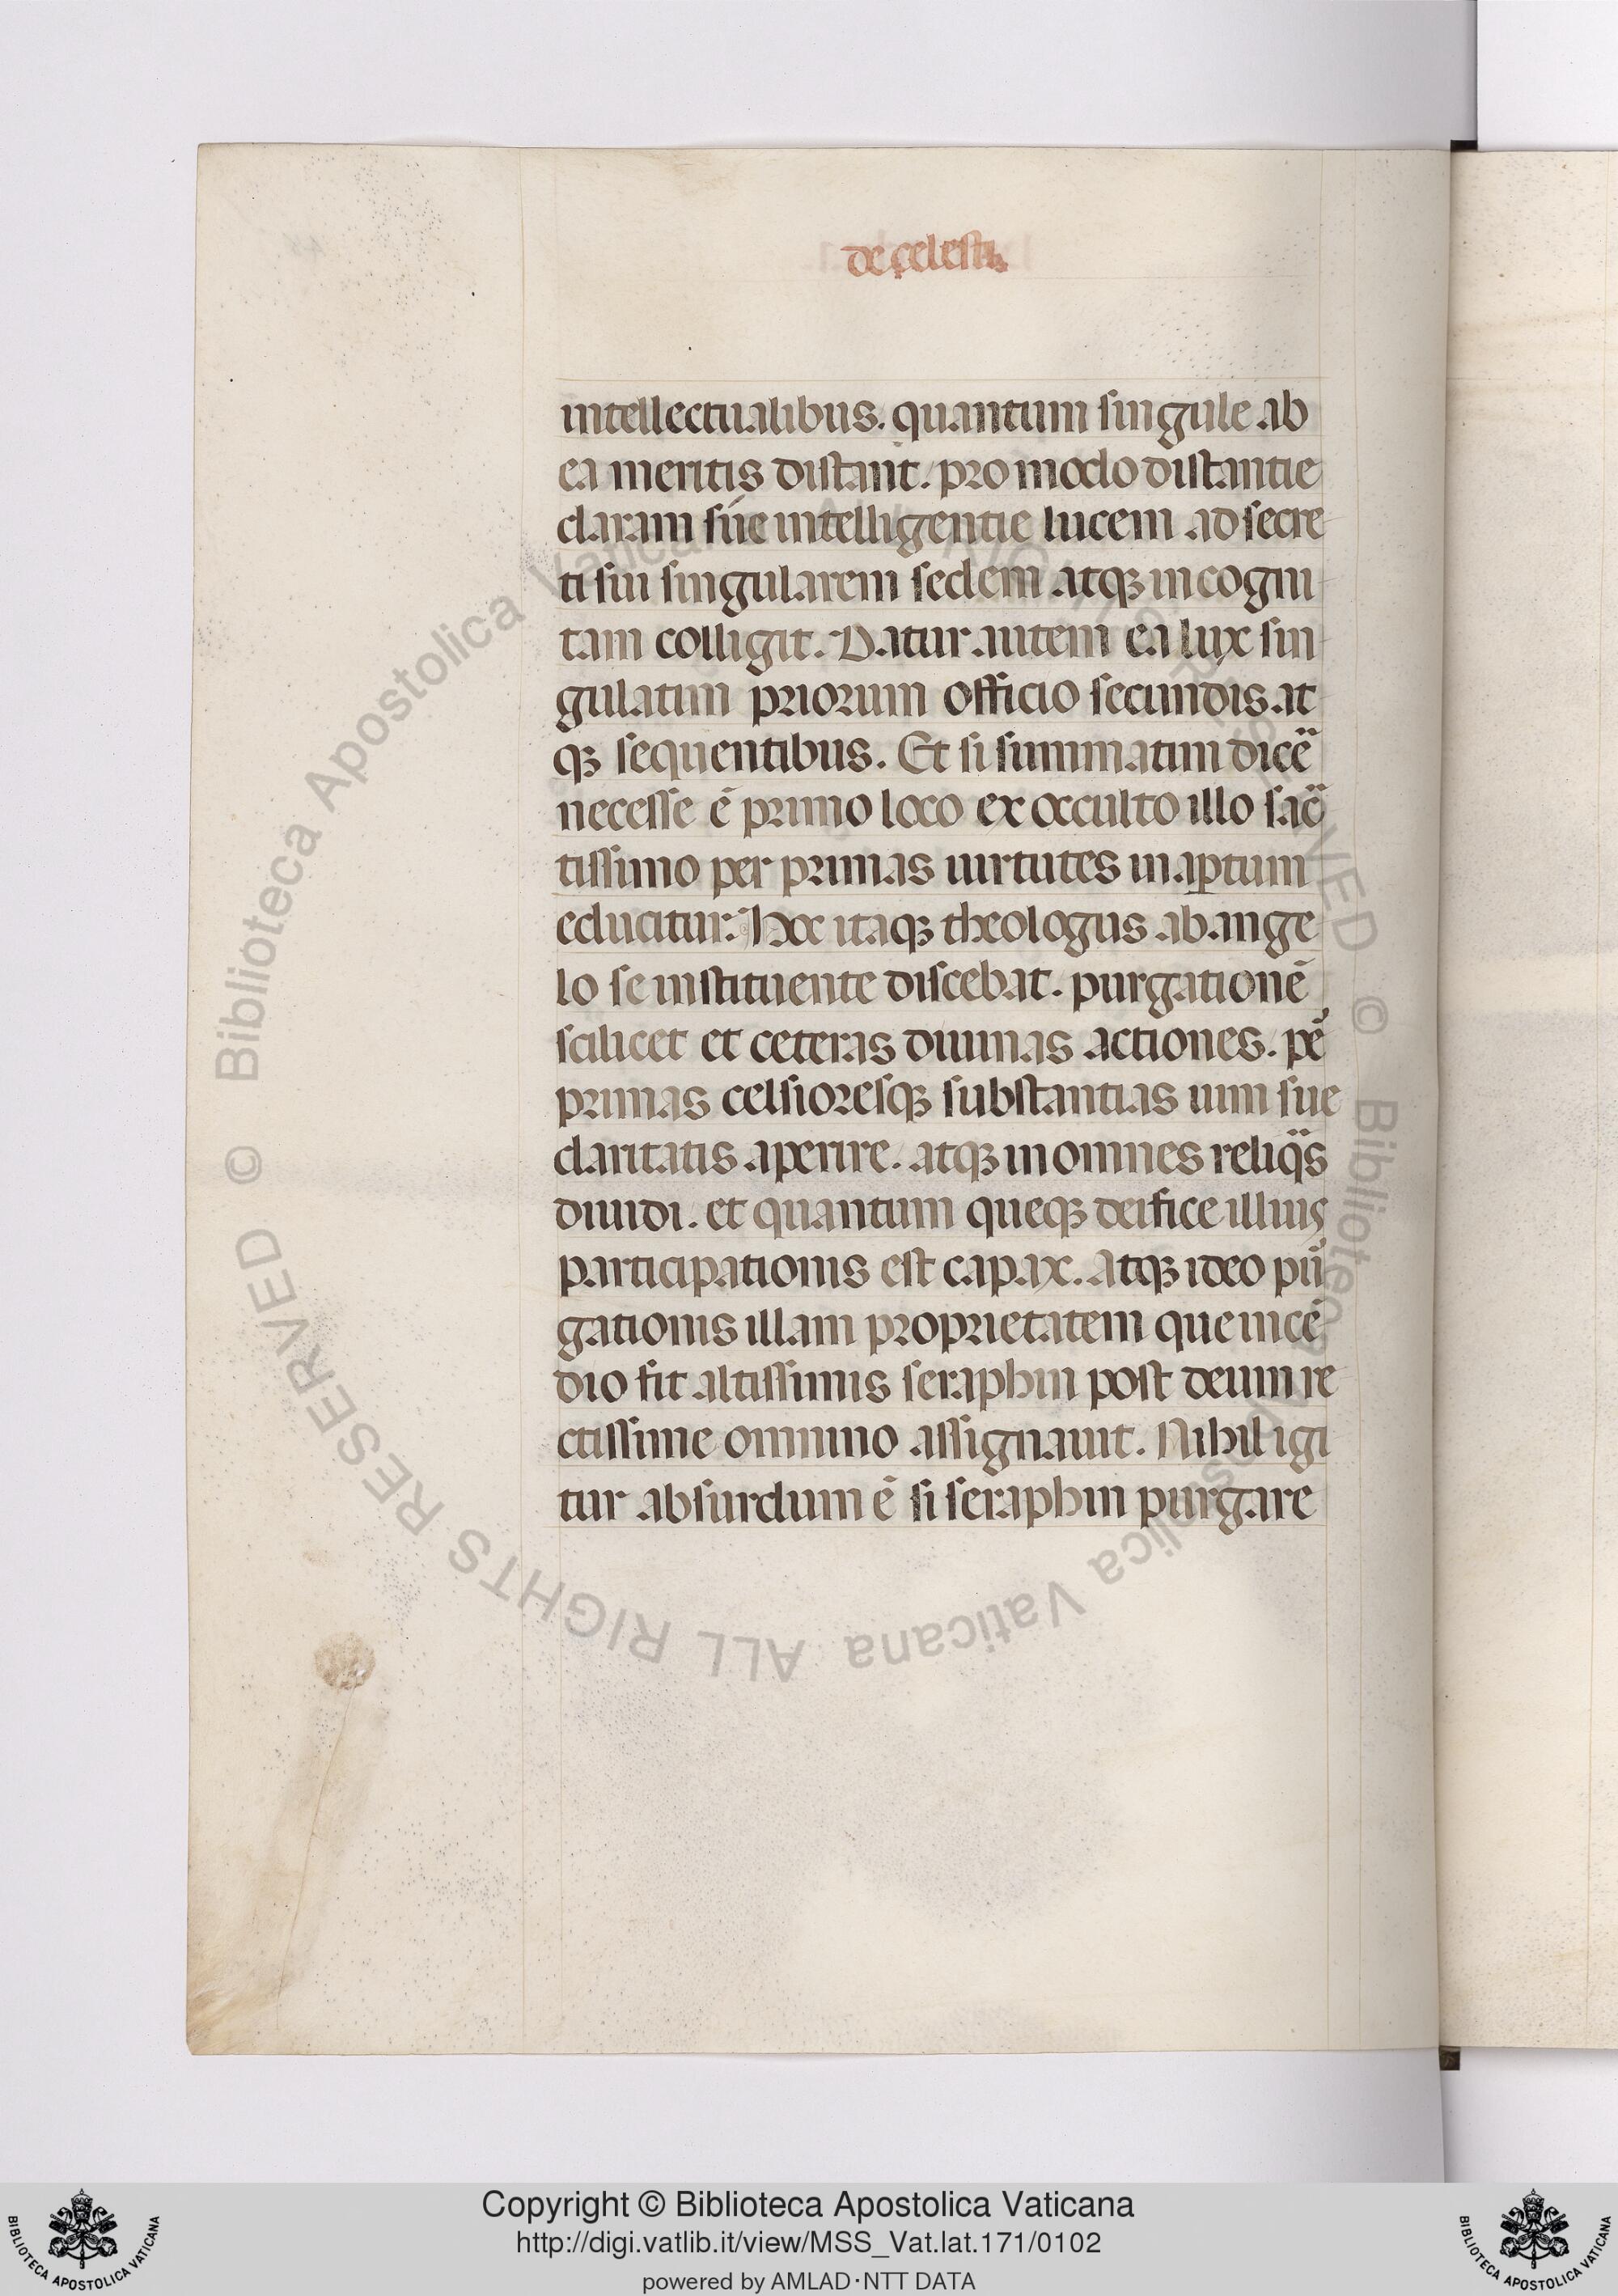 de çelesti
intellectualibus. quantum singule ab
ea meritis distant. pro modo distantie
claram sue intelligentie lucem ad secre
ti sui singularem sedem atqꝫ incogni
tam colligit. Datur autem ea lux sin
gulatim priorum officio secundis at
qꝫ sequentibus. Et si summatim dicē
necesse ē primo loco ex occulto illo sāc
tissimo per primas uirtutes in aꝑtum
educitur. Hoc itaqꝫ theologus ab ange
lo se instituente discebat. purgationē
scilicet et ceteras diuinas actiones. pe᷑
primas celsioresqꝫ substantias uim sue
claritatis aperire. atqꝫ in omnes reliq̈s
diuidi. et quantum queqꝫ deifice illius
participationis est capax. Atqꝫ ideo pu᷑
gationis illam proprietatem que incē
dio fit altissimis seraphin post deum re
ctissime omnino assignauit. Nihil igi
tur absurdum ē si seraphin purgare
© Biblioteca Apostolica Vaticana ALL RIGHTS RESERVED © Biblioteca Apostolica Vaticana ALL RIGHTS RESERVED
Copyright © Biblioteca Apostolica Vaticana
http://digi.vatlib.it/view/MSS_Vat.lat.171/0102
powered by AMLAD·NTT DATA
BIBLIOTECA APOSTOLICA VATICANA
BIBLIOTECA APOSTOLICA VATICANA